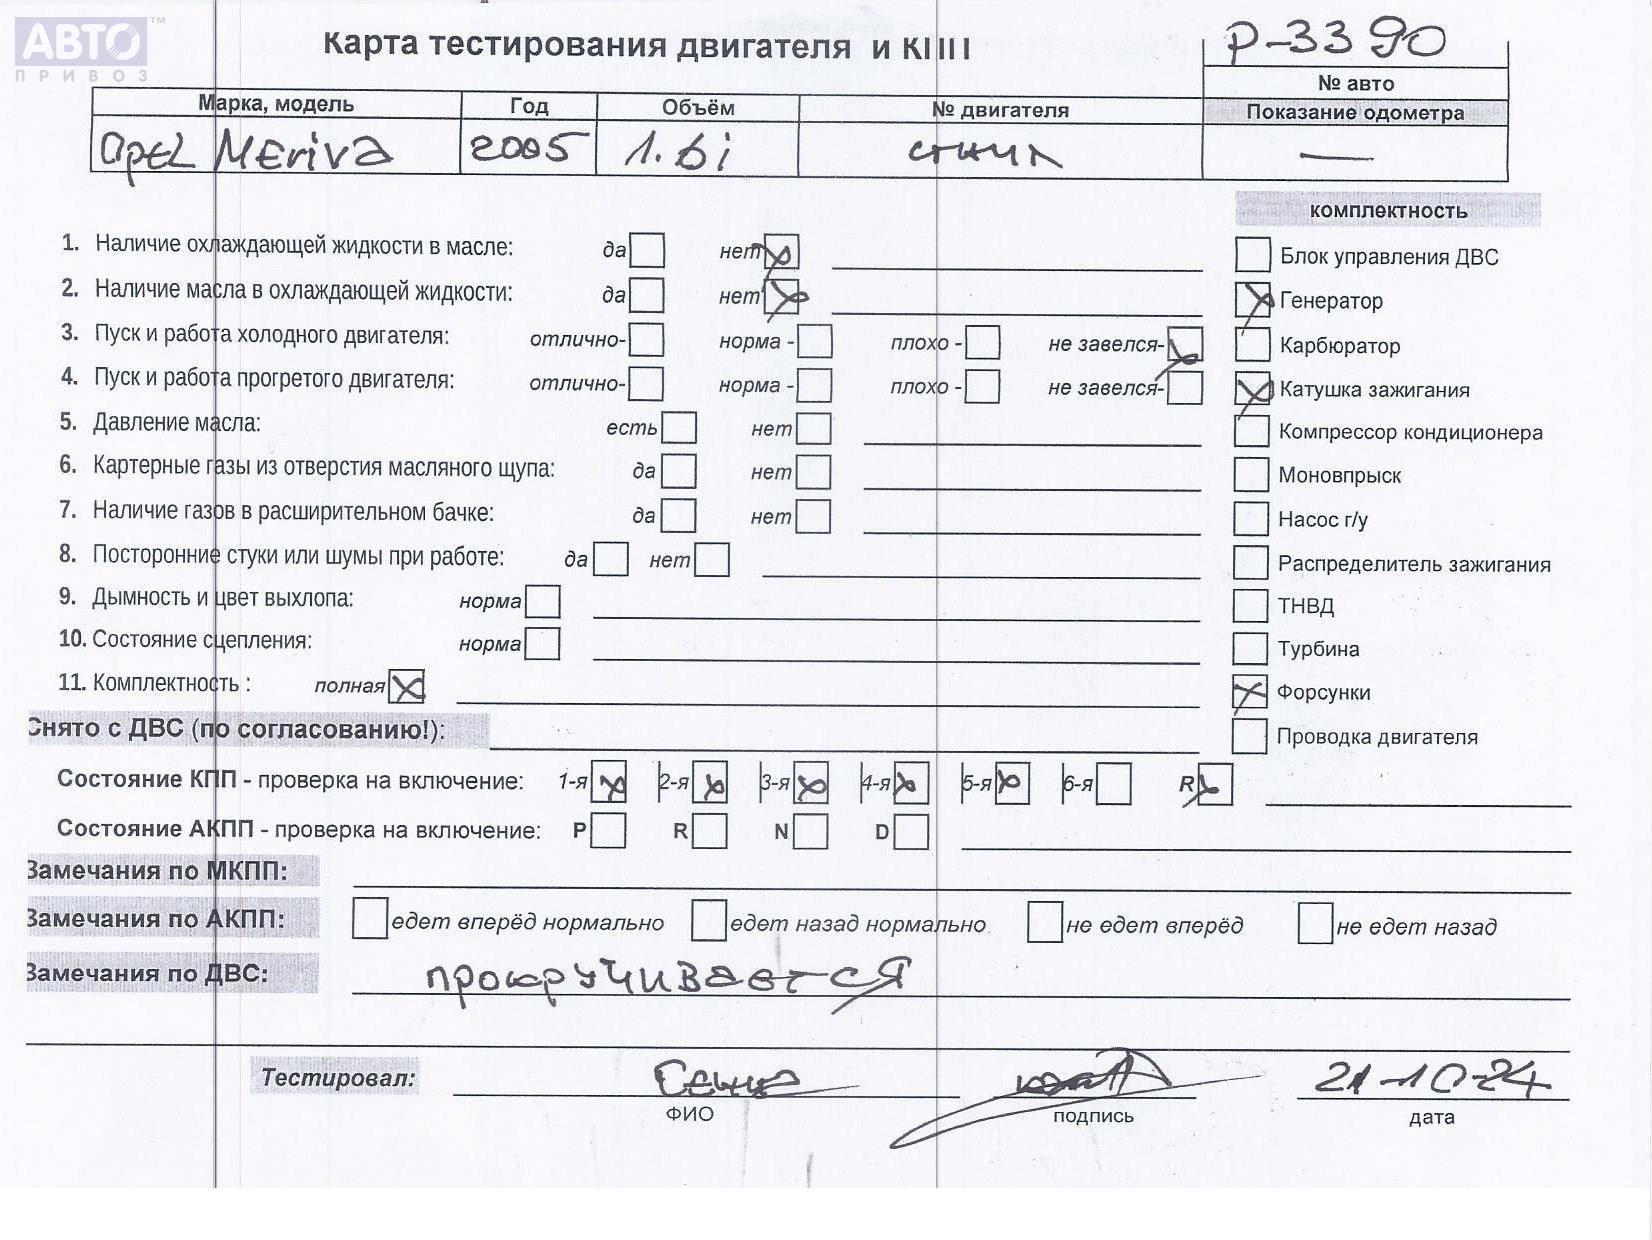 АВТО™
ПРИВОЗ
Карта тестирования двигателя и КПП
Р-3390
№ авто
Марка, модель Год Объём № двигателя Показание одометра
Opel Meriva 2005 1.6i —
комплектность
1. Наличие охлаждающей жидкости в масле: да нет Блок управления ДВС
2. Наличие масла в охлаждающей жидкости: да нет Генератор
3. Пуск и работа холодного двигателя: отлично- норма - плохо - не завелся- Карбюратор
4. Пуск и работа прогретого двигателя: отлично- норма - плохо - не завелся- Катушка зажигания
5. Давление масла: есть нет Компрессор кондиционера
6. Картерные газы из отверстия масляного щупа: да нет Моновпрыск
7. Наличие газов в расширительном бачке: да нет Насос г/у
8. Посторонние стуки или шумы при работе: да нет Распределитель зажигания
9. Дымность и цвет выхлопа: норма ТНВД
10. Состояние сцепления: норма Турбина
11. Комплектность : полная Форсунки
Снято с ДВС (по согласованию!): Проводка двигателя
Состояние КПП - проверка на включение: 1-я 2-я 3-я 4-я 5-я 6-я R
Состояние АКПП - проверка на включение: P R N D
Замечания по МКПП:
Замечания по АКПП: едет вперёд нормально едет назад нормально не едет вперёд не едет назад
Замечания по ДВС: прокручивается
Тестировал: 21-10-24
ФИО подпись дата